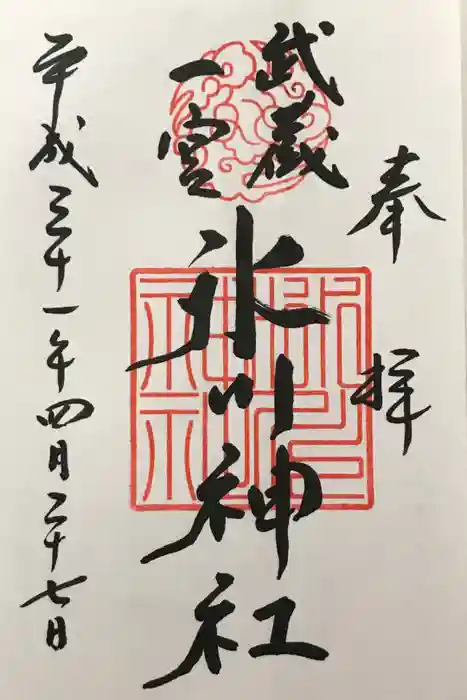 奉拝
武蔵
一宮
氷川神社
平成三十一年四月二十七日
氷川
神社